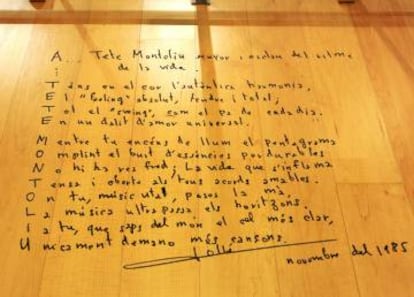 A... Tete Montoliu major i esclau del ritme
de la vida.
A:
Tens en el cor l'autèntica harmonia,
El "feeling" absolut, tendre i total,
Tot el "swing", com el pa de cada dia.
En un dalit d'amor universal.
Mentre tu encens de llum el pentagrama
Omplint el buit d'essències perdurables
No hi ha res fred, La vida que s'inflama
Tensa i oberta als teus acords amables.
On tu, músic
La música ultrapassa els horitzons.
I a tu, que saps del món el cel més clar,
Unicament demano més cansons.
novembre del 1985